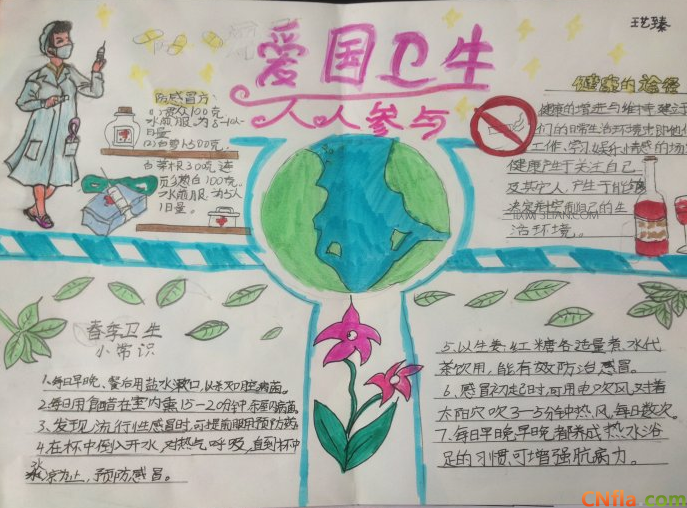 爱国卫生
人人参与
王艺臻
防感冒方:
(1)贯众100克
水煎服,为8-10人
日量。
(2)白萝卜500克
白菜根300克 连
须葱白100克
水煎服 为5人
1日量。
健康的途径
健康的增进与维护建立于
们的日常生活环境
工作、学习、娱乐、情感的场
健康产生于关注自己
及其它人,产生于
决定和控制自己的生
活环境。
春季卫生
小常识
1、每日早晚、餐后用盐水漱口,以杀灭口腔病菌。
2、每日用食醋在室内熏15-20分钟杀屋内病菌。
3、发现流行性感冒时,可提前服用预防药。
4、在杯中倒入开水,对热气呼吸,直到杯中
水凉为止,预防感冒。
5、以生姜、红糖各适量煮水代
茶饮用,能有效防治感冒。
6、感冒初起时,可用电吹风对着
太阳穴吹3-5分钟热风,每日数次。
7、每日早晚早晚都养成热水浴
足的习惯,可增强抗病力。
CNfla.com